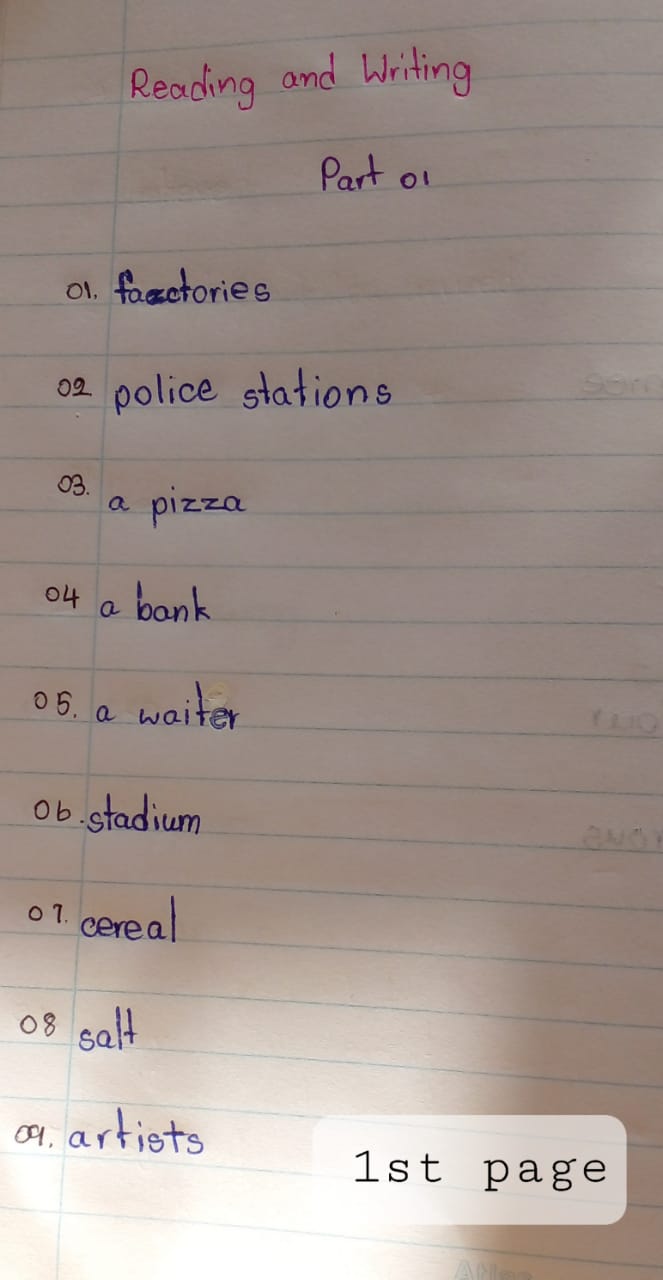 Reading and Writing
Part 01
01. factories
02 police stations
03. a pizza
04 a bank
05. a waiter
06. stadium
07. cereal
08 salt
09. artists
1st page